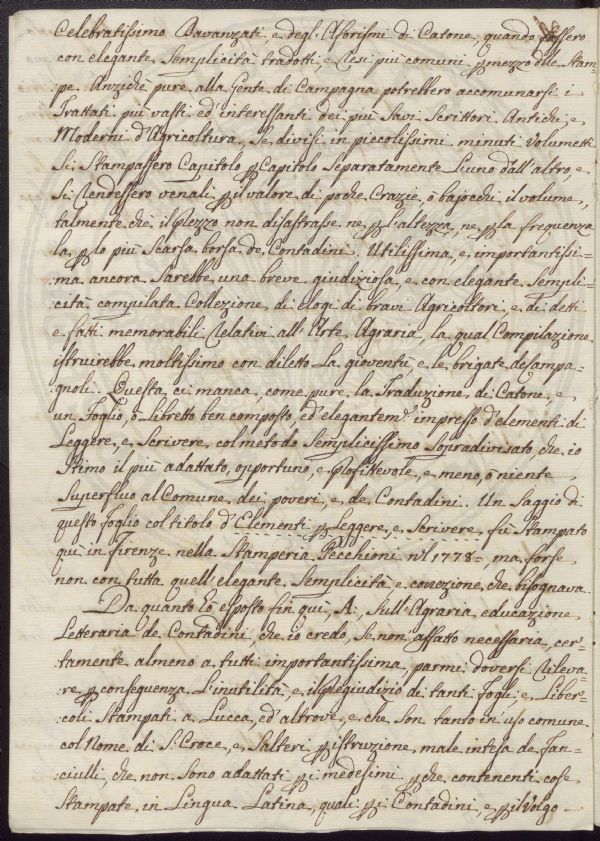 Celebratissimo Davanzati e degl'Aforismi di Catone, quando fossero
con elegante Semplicità tradotti, e resi più comuni p mezzo delle Stam-
:pe. Anzichè pure alla Gente di Campagna potrebbero accomunarsi i
Trattati più vasti ed'interessanti dei più Savi Scrittori Antichi, e
Moderni d'Agricoltura, Se divisi in piccolissimi minuti Volumetti
Si Stampassero Capitolo p Capitolo Separatamente l'uno dall'altro, e
Si rendessero venali p il valore di poche Crazie, ò bajocchi il volume,
talmente, chè il prezzo non disastrasse ne p l'altezza, ne p la frequenza
la p lo più Scarsa borsa de Contadini. Utilissima, e importantissi-
:ma ancora Sarebbe una breve giudiziosa, e con elegante Sempli-
:cità compilata Collezione di elogi di bravi Agricoltori, e di detti
e fatti memorabili relativi all'Arte Agraria, la qual Compilazione
istruirebbe moltissimo con diletto la gioventù, e le brigate de Campa-
:gnoli. Questa ci manca, come pure la Traduzione di Catone, e
un foglio, ò libretto ben composto, ed'elegantem.e impresso d'elementi di
Leggere, e Scrivere, col metodo Semplicissimo Sopradivisato, che io
Stimo il più adattato, opportuno, e profittevole, e meno, ò niente
Superfluo al Comune dei poveri, e de Contadini. Un Saggio di
questo foglio col titolo d'Elementi p Leggere, e Scrivere, fù Stampato
qui in Firenze nella Stamperia Pecchioni nel 1778=, ma forse
non con tutta quell'elegante Semplicità e correzione, che bisognava.
Da quanto hò esposto fin quì, A:, Sull'Agraria educazione
Letteraria de Contadini, che io credo, Se non affatto necessaria, cer-
:tamente almeno a tutti importantissima, parmi doversi rileva-
:re p conseguenza l'inutilità, e il pregiudizio di tanti fogli, e Liber-
:coli Stampati a Lucca, ed'altrove, e che Son tanto in uso comune
col Nome di S: Croce, e Salteri p istruzione male intesa de fan-
:ciulli, che non Sono adattati p i medesimi p che contenenti cose
Stampate in Lingua Latina, quali p i Contadini, e p il Volgo